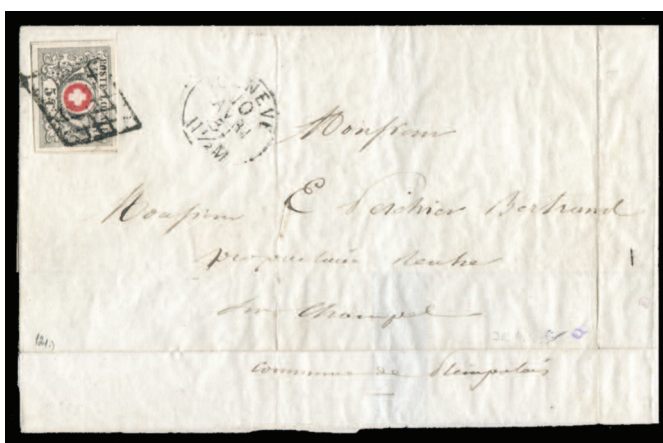 POSTE LOCALE
5
GENEVE
10
AVR
51
11½M
Monsieur
Monsieur E Bertrand
propriétaire
Sur Champel
commune de Plainpalais